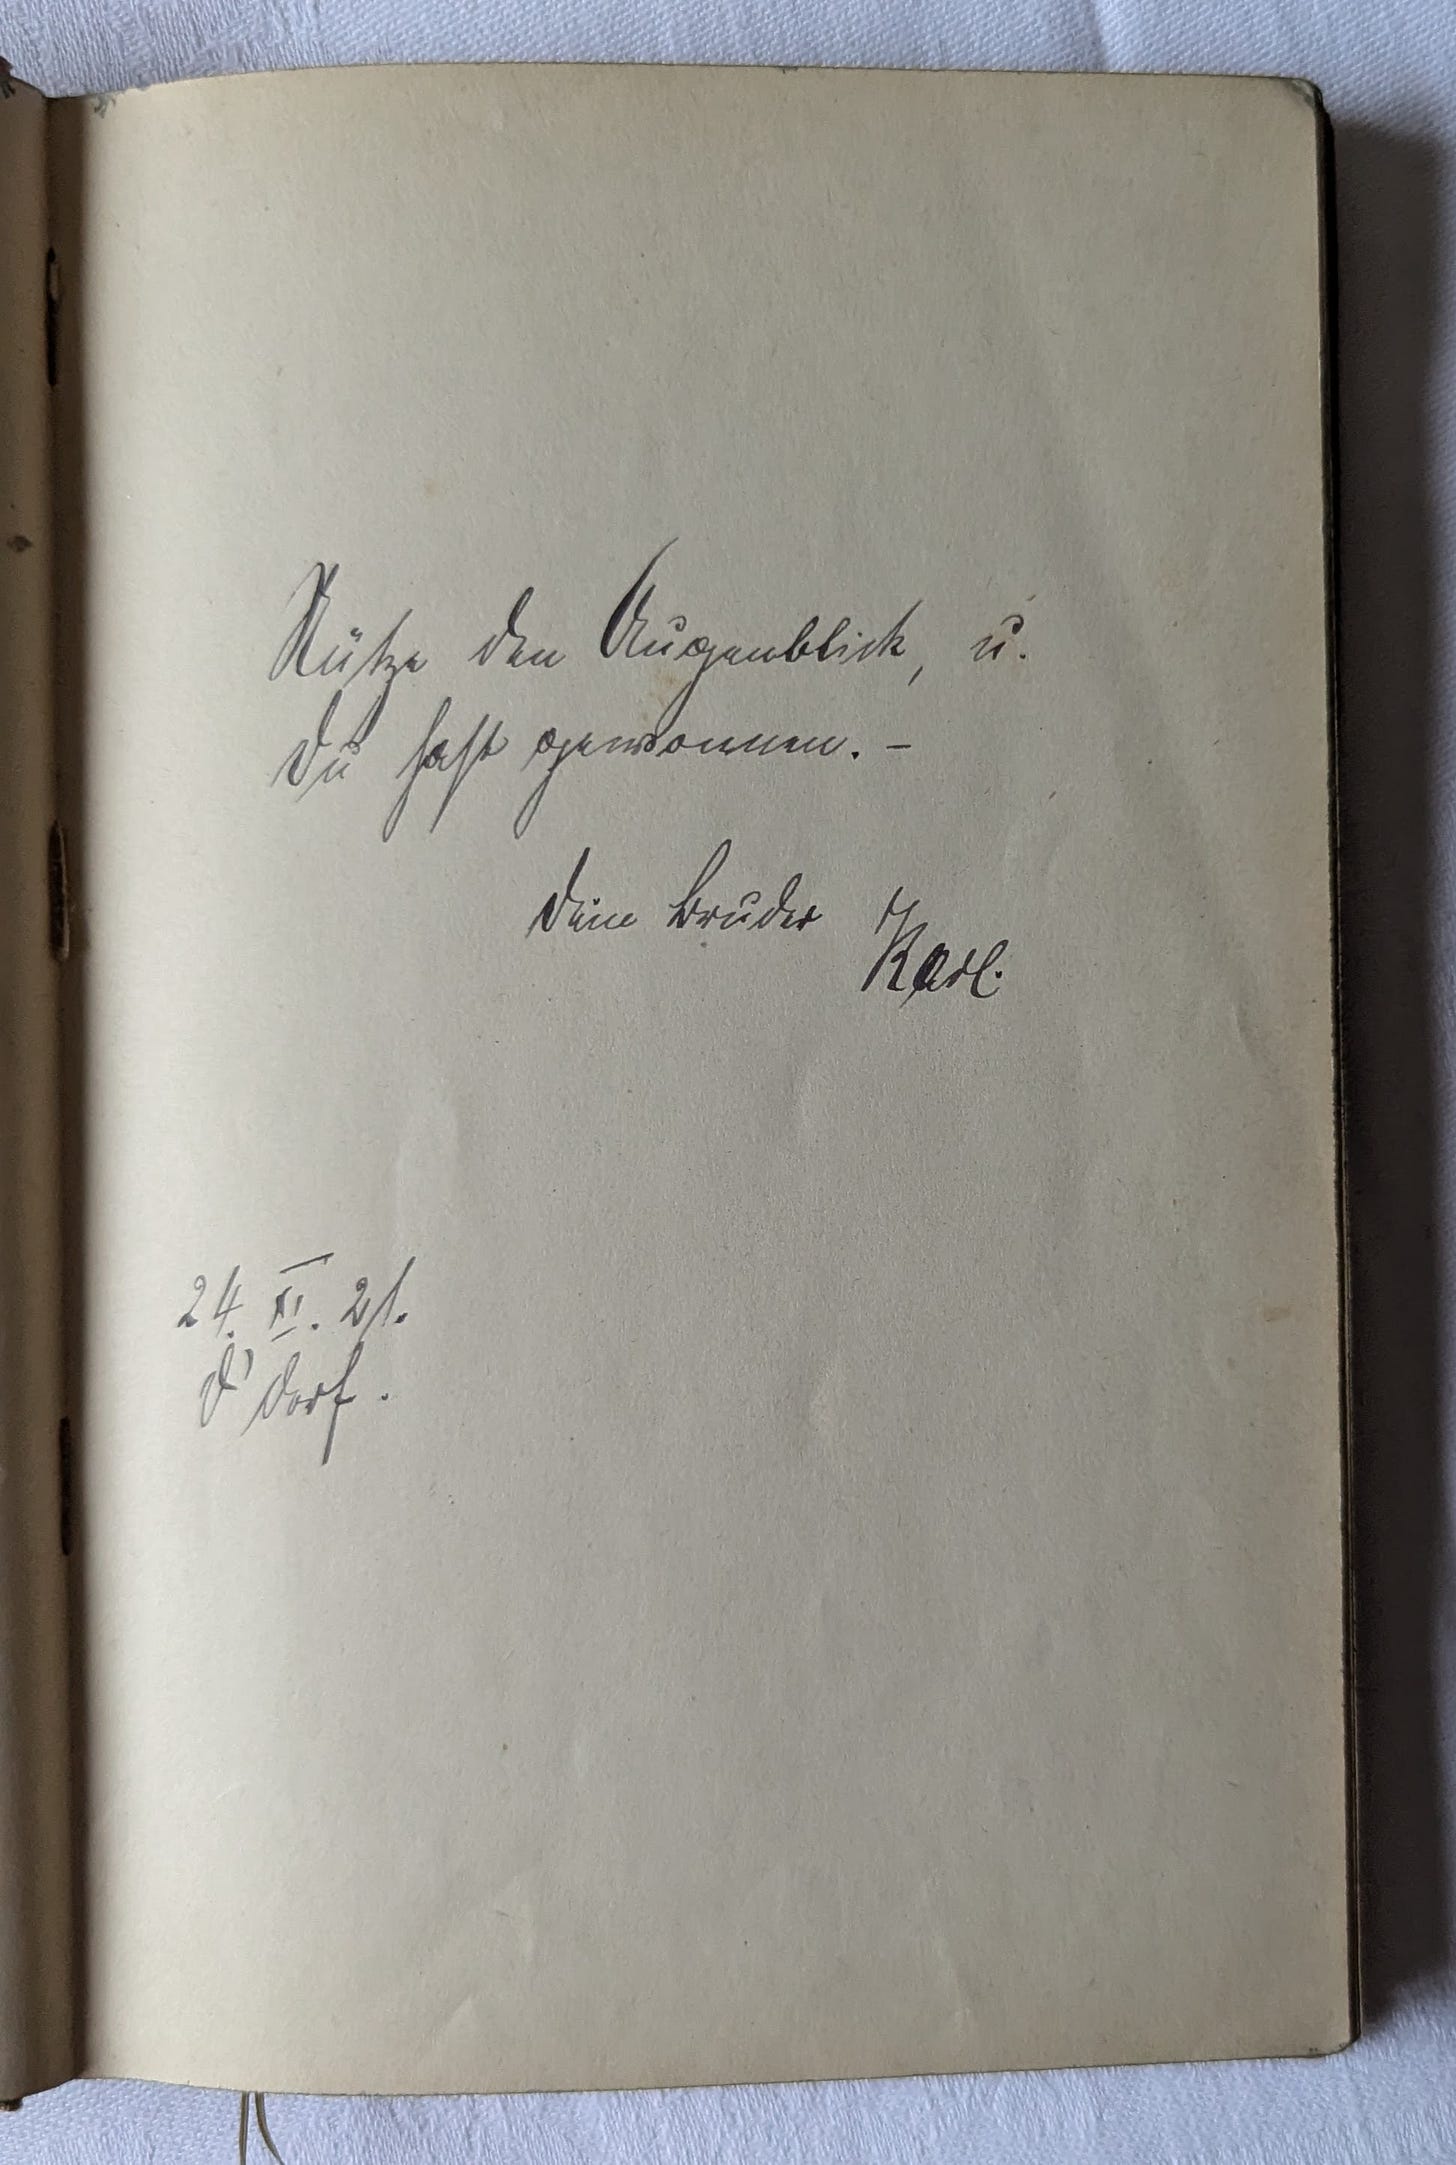 Nütze den Augenblick, u.
Du hast gewonnen. –
Dein Bruder
Karl.
24. XI. 21.
D'dorf.